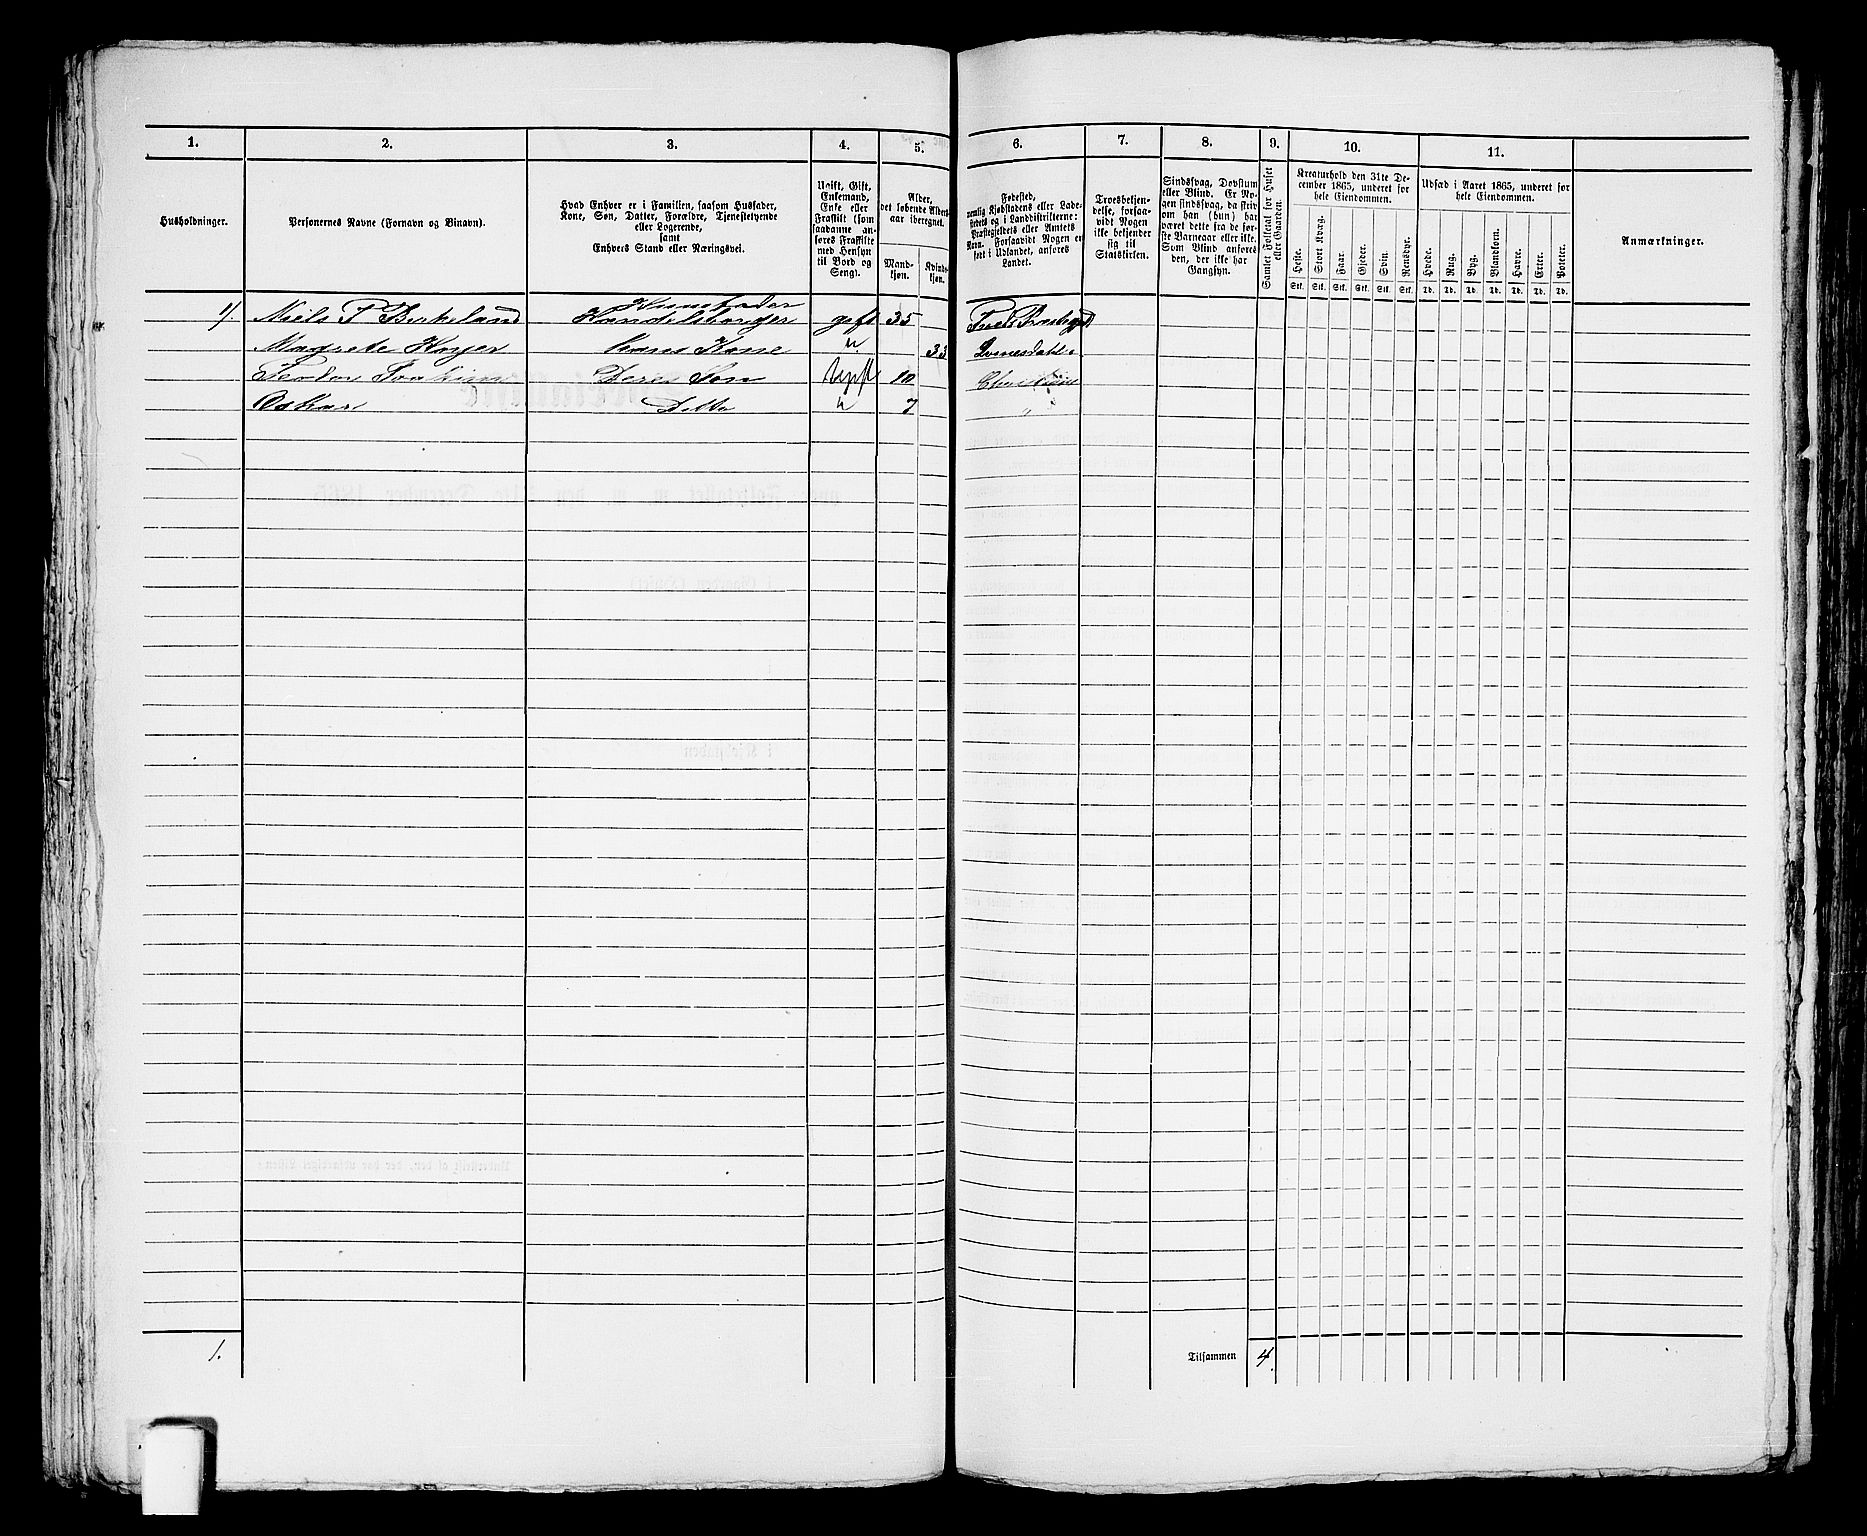 1. 2. 3. 4. 5. 6. 7. 8. 9. 10. 11.
Husholdninger.
Personernes Navne (Fornavn og Binavn).
Hvad Enhver er i Familien, saasom Husfader,
Kone, Søn, Datter, Forældre, Tjenestetyende
eller Logerende,
samt
Enhvers Stand eller Næringsvei.
Ugift, Gift,
Enkemand,
Enke eller
Fraskilt (som
saadanne an-
føres Fraskilte
med Hensyn
til Bord og
Seng).
Alder,
det løbende Alders-
aar iberegnet.
Mand-
kjøn.
Kvinde-
kjøn.
Fødested,
nemlig Kjøbstadens eller Lade-
stedets og i Landdistrikterne:
Præstegjeldets eller Amtets
Navn. Forsaavidt Nogen er
født i Udlandet, anføres
Landet.
Troesbekjen-
delse, forsaa-
vidt Nogen
ikke bekjender
sig til
Statskirken.
Sindssvag, Døvstum
eller Blind. Er No-
gen sindssvag, da skriv
om han (hun) har
været dette fra de før-
ste Barneaar eller ikke.
Som Blind anføres
den, der ikke har
Gangsyn.
Samlet Folketal for Huset
eller Gaarden.
Kreaturhold den 31te De-
cember 1865, underet for
hele Eiendommen.
Heste. Stort Kvæg. Faar. Gjeder. Svin. Rensdyr.
Stk. Stk. Stk. Stk. Stk. Stk.
Udsæd i Aaret 1865, underet for
hele Eiendommen.
Hvede. Rug. Byg. Blandkorn. Havre. Erter. Poteter.
Td. Td. Td. Td. Td. Td. Td.
Anmærkninger.
Huusfader
1). Niels P Birkeland Handelsborger gift 35
Magrete Høyer hans Kone " 33 Qvinesdahl
Teodor Deres Søn Ugift 10
Oskar Ditto " 7 "
1. Tilsammen 4.